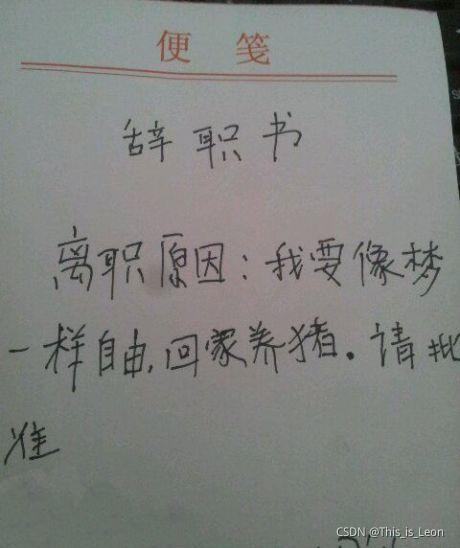 便 笺
辞职书
离职原因：我要像梦
一样自由,回家养猪。请批
准
CSDN @This_is_Leon